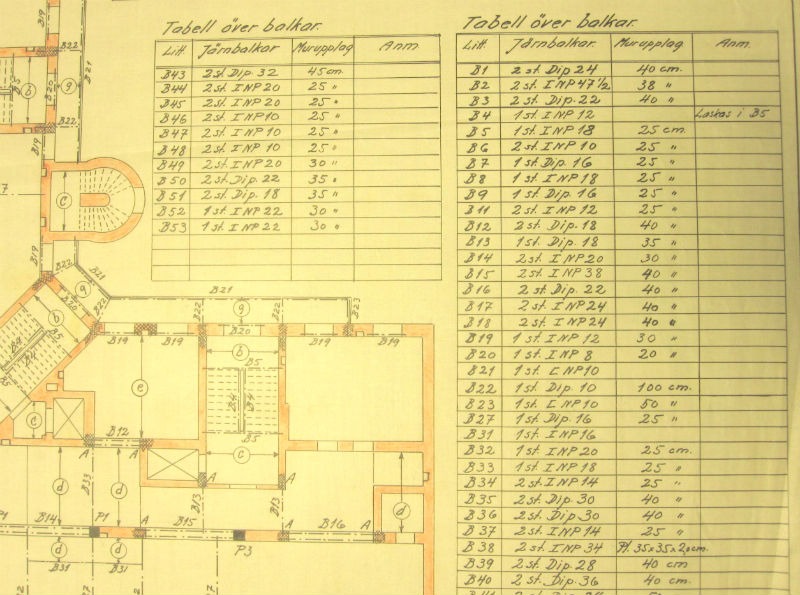 Tabell över balkar.
Litt. Järnbalkar Murupplag Anm
B43 2 st. Dip. 32 45 cm.
B44 2 st. I NP 20 25 "
B45 2 st. I NP 20 25 "
B46 2 st. I NP 10 25 "
B47 2 st. I NP 10 25 "
B48 2 st. I NP 10 25 "
B49 2 st. I NP 20 30 "
B50 2 st. Dip. 22 35 "
B51 2 st. Dip. 18 35 "
B52 1 st. I NP 22 30 "
B53 1 st. I NP 22 30 "
Tabell över balkar.
Litt. Järnbalkar. Murupplag Anm.
B1 2 st. Dip 24 40 cm.
B2 2 st. I NP 47 1/2 38 "
B3 2 st. Dip. 22 40 "
B4 1 st. I NP 12 Laskas i B5
B5 1 st. I NP 18 25 cm.
B6 2 st. I NP 10 25 "
B7 1 st. Dip. 16 25 "
B8 1 st. I NP 18 25 "
B9 1 st. Dip. 16 25 "
B11 2 st. I NP 12 25 "
B12 2 st. Dip. 18 40 "
B13 1 st. Dip. 18 35 "
B14 2 st. I NP 20 30 "
B15 2 st. I NP 38 40 "
B16 2 st. Dip. 22 40 "
B17 2 st. I NP 24 40 "
B18 2 st. I NP 24 40 "
B19 1 st. I NP 12 30 "
B20 1 st. I NP 8 20 "
B21 1 st. C NP 10
B22 1 st. Dip. 10 100 cm.
B23 1 st. C NP 10 50 "
B27 1 st. Dip. 16 25 "
B31 1 st. I NP 16
B32 1 st. I NP 20 25 cm.
B33 1 st. I NP 18 25 "
B34 2 st. I NP 14 25 "
B35 2 st. Dip. 30 40 "
B36 2 st. Dip. 30 40 "
B37 2 st. I NP 14 25 "
B38 2 st. I NP 34 Pl. 35x35x2,0 cm.
B39 2 st. Dip. 28 40 cm
B40 2 st. Dip. 36 40 cm
B19
B22
b
B5
B20
g
B21
B22
B19
C
B19
B22
B21
g
B20
B22
b
B5
B4
B4
B5
C
B21
B22
g
B20
B22
B23
B19
B19
B19
B19
b
B5
e
B4
B4
B5
B12
A
A
C
A
A
d
B33
d
B13
B13
d
P1
B14
P1
A
B15
A
B16
A
P3
d
d
B31
B31